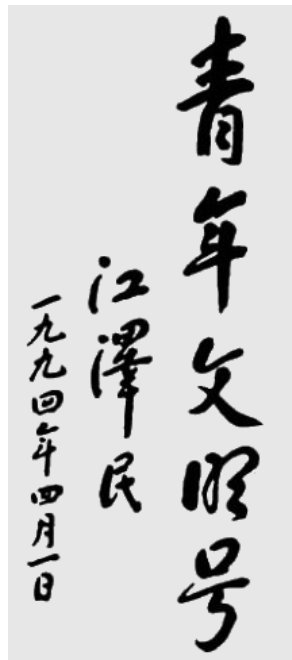 青年文明号
江澤民
一九九四年四月一日